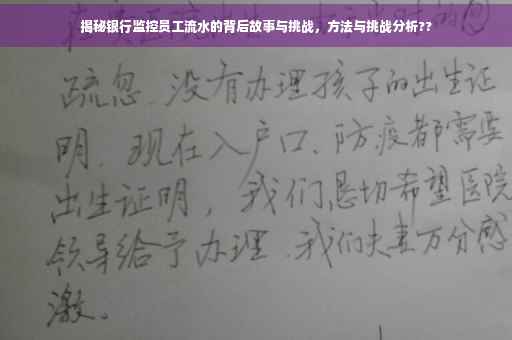 揭秘银行监控员工流水的背后故事与挑战，方法与挑战分析??
疏忽、没有办理孩子的出生证
明、现在入户口、防疫都需要
出生证明，我们恳切希望医院
领导给予办理、我们夫妻万分感
激。